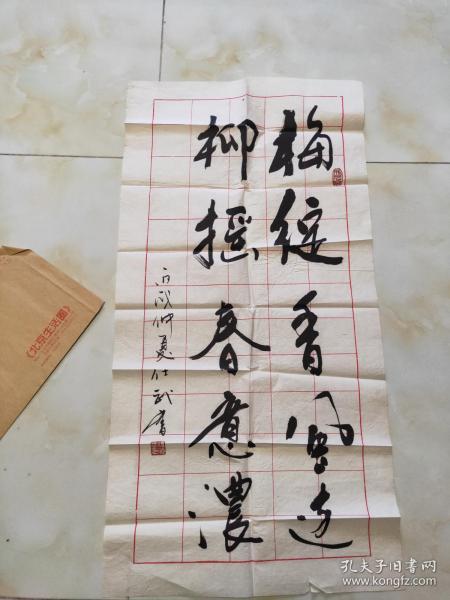 梅绽香风远
柳摇春意浓
戊戌仲夏仕武书
《北京生活圈》
孔夫子旧书网
www.kongfz.com